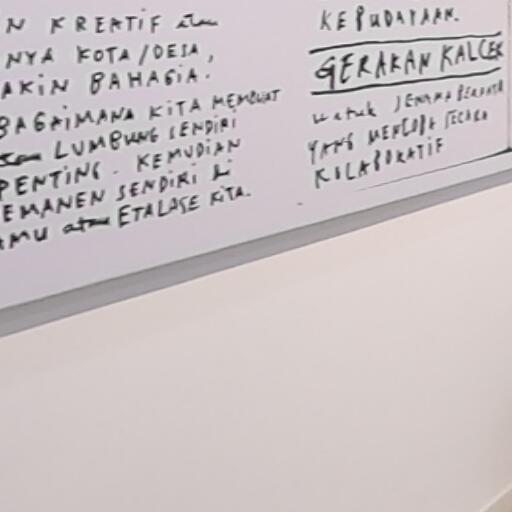 N KREATIF atau
NYA KOTA/DESA,
AKIN BAHAGIA.
BAGAIMANA KITA MEMBUAT
LUMBUNG SENDIRI
PENTING. KEMUDIAN
EMANEN SENDIRI di
AMU atau ETALASE KITA.
KEBUDAYAAN.
GERAKAN KALCER
untuk
YANG MENCOBA SECARA
KOLABORATIF